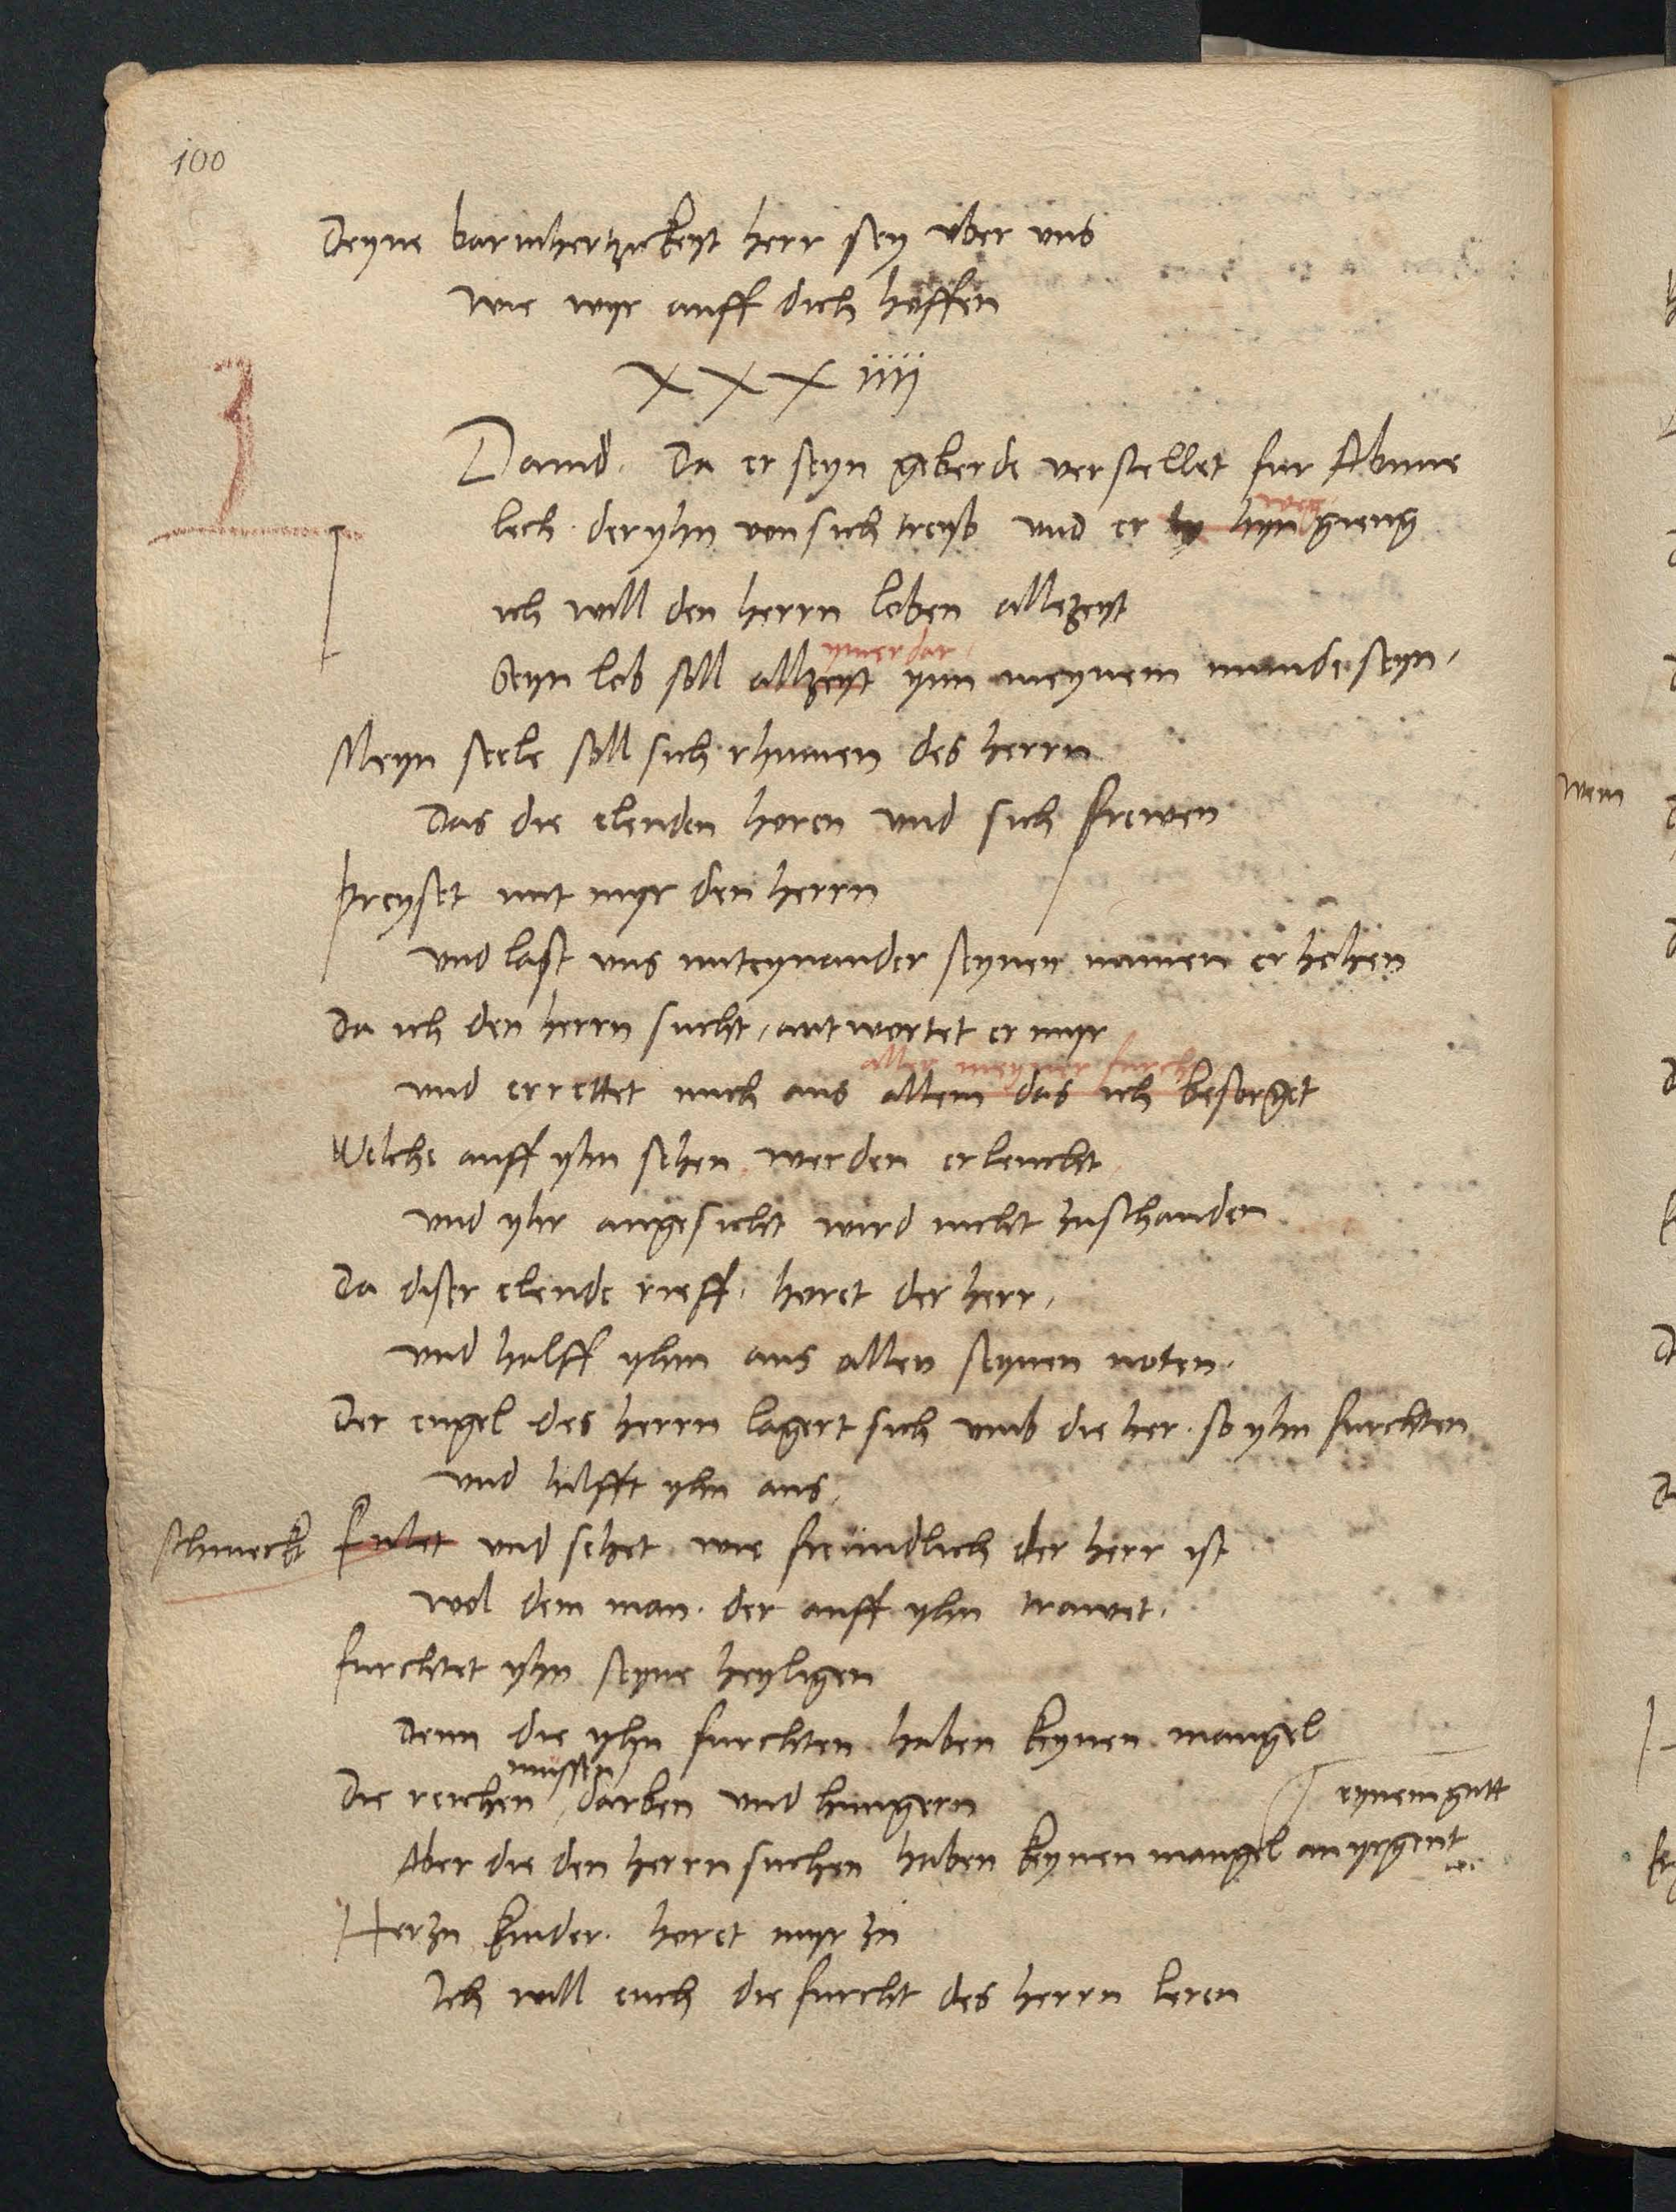 100
Deyne barmhertzickeyt herr sey vber vns
wie wyr auff dich hoffen
XXXiiij
Dauid. Da er seyn geberde verstellet fur Abime
lech. der yhn von sich treyb vnd er hyn weg gieng
ich will den herrn loben allezeyt
Seyn lob soll allzeyt ymerdar ynn meynem munde seyn.
Meyn seele soll sich rhumen des herrn
Das die elenden horen vnd sich frewen
Preyset mit myr den herrn
vnd last vns miteynander seynen namen erhohen
Da ich den herrn sucht, antwortet er myr
aller meyner furcht
vnd errettet mich aus allem das ich besorget
Welche auff yhn sehen werden erleucht
vnd yhr angesicht wird nicht zuschanden
Da diser elende rieff. horet der herr,
vnd halff yhm aus allen seynen noten.
Der engel des herrn lagert sich vmb die her. so yhn furchten
vnd hilfft yhn aus,
schmeckt Fulet vnd sehet wie freundlich der herr ist
wol dem man. der auff yhn trawet.
furchtet yhn seyne heyligen
Denn die yhn furchten haben keynen mangel
Die reichen mussen darben vnd hungern
eynem gutt
Aber die den herrn suchen haben keynen mangel an yrgent
Her zu kinder. horet myr zu
Ich will euch die furcht des herrn leren
wem